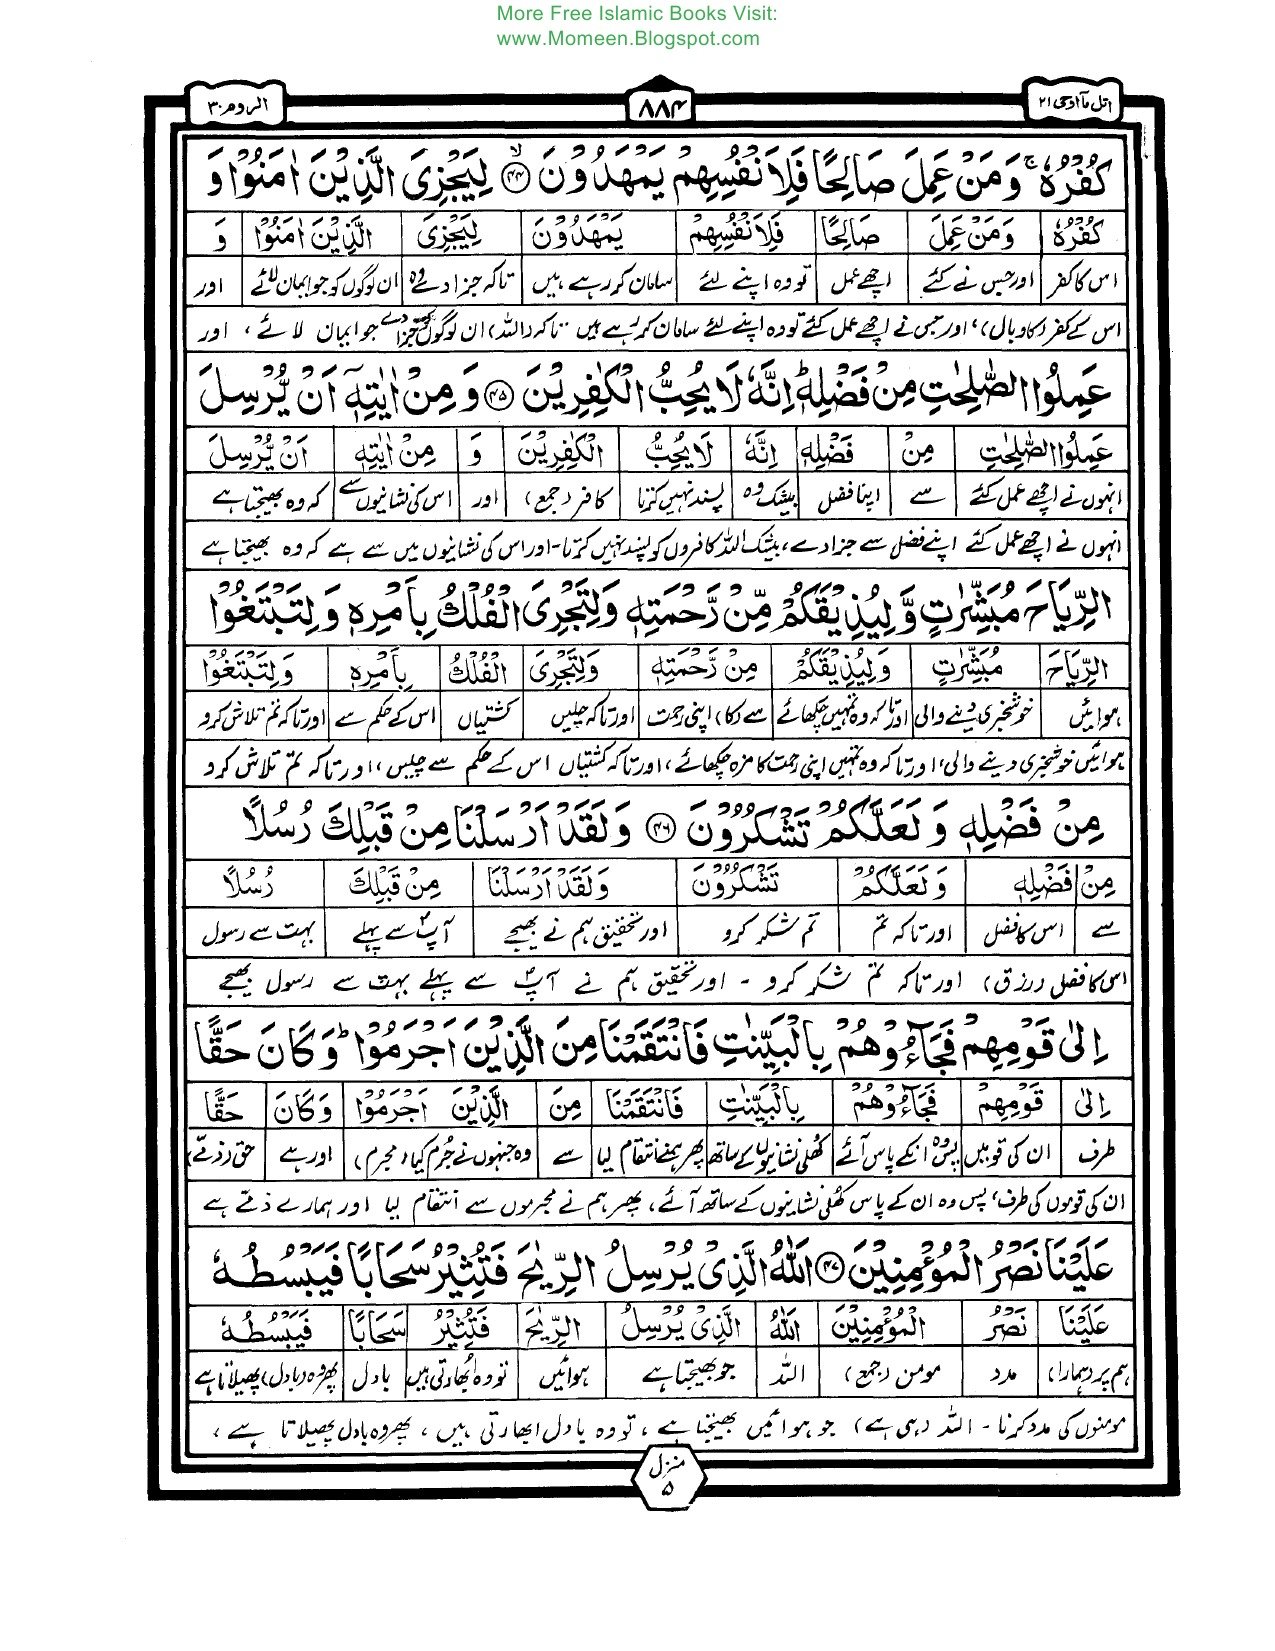 More Free Islamic Books Visit:
www.Momeen.Blogspot.com
اتل مآاوحی ۲۱
۸۸۴
الروم ۳۰
كُفْرُهٗ ۚ وَمَنْ عَمِلَ صَالِحًا فَلِاَنْفُسِهِمْ يَمْهَدُوْنَ ۙ‏﴿۴۴﴾ لِيَجْزِىَ الَّذِيْنَ اٰمَنُوْا وَ
كُفْرُهٗ وَمَنْ عَمِلَ صَالِحًا فَلِاَنْفُسِهِمْ يَمْهَدُوْنَ لِيَجْزِىَ الَّذِيْنَ اٰمَنُوْا وَ
اس کا کفر اور جس نے کئے اچھے عمل تو وہ اپنے لئے سامان کر رہے ہیں تاکہ جزا دے وہ ان لوگوں کو جو ایمان لائے اور
اس کے کفر (کا وبال)، اور جس نے اچھے عمل کئے تو وہ اپنے لئے سامان کر رہے ہیں تاکہ (اللہ) ان لوگوں کو جزا دے جو ایمان لائے، اور
عَمِلُوا الصّٰلِحٰتِ مِنْ فَضْلِهٖ ؕ اِنَّهٗ لَا يُحِبُّ الْكٰفِرِيْنَ ﴿۴۵﴾ وَمِنْ اٰيٰتِهٖۤ اَنْ يُّرْسِلَ
عَمِلُوا الصّٰلِحٰتِ مِنْ فَضْلِهٖ اِنَّهٗ لَا يُحِبُّ الْكٰفِرِيْنَ وَ مِنْ اٰيٰتِهٖ اَنْ يُّرْسِلَ
انہوں نے اچھے عمل کئے سے اپنا فضل بیشک وہ پسند نہیں کرتا کافر (جمع) اور اس کی نشانیوں سے کہ وہ بھیجتا ہے
انہوں نے اچھے عمل کئے اپنے فضل سے جزا دے، بیشک اللہ کافروں کو پسند نہیں کرتا۔ اور اس کی نشانیوں میں سے ہے کہ وہ بھیجتا ہے
الرِّيَاحَ مُبَشِّرٰتٍ وَّلِيُذِيْقَكُمْ مِّنْ رَّحْمَتِهٖ وَلِتَجْرِىَ الْفُلْكُ بِاَمْرِهٖ وَلِتَبْتَغُوْا
الرِّيَاحَ مُبَشِّرٰتٍ وَلِيُذِيْقَكُمْ مِنْ رَّحْمَتِهٖ وَلِتَجْرِىَ الْفُلْكُ بِاَمْرِهٖ وَلِتَبْتَغُوْا
ہوائیں خوشخبری دینے والی اور تاکہ وہ تمہیں چکھائے سے (کا) اپنی رحمت اور تاکہ چلیں کشتیاں اس کے حکم سے اور تاکہ تم تلاش کرو
ہوائیں خوشخبری دینے والی، اور تاکہ وہ تمہیں اپنی رحمت کا مزہ چکھائے، اور تاکہ کشتیاں اس کے حکم سے چلیں، اور تاکہ تم تلاش کرو
مِنْ فَضْلِهٖ وَلَعَلَّكُمْ تَشْكُرُوْنَ ﴿۴۶﴾ وَلَقَدْ اَرْسَلْنَا مِنْ قَبْلِكَ رُسُلًا
مِنْ فَضْلِهٖ وَلَعَلَّكُمْ تَشْكُرُوْنَ وَلَقَدْ اَرْسَلْنَا مِنْ قَبْلِكَ رُسُلًا
سے اس کا فضل اور تاکہ تم تم شکر کرو اور تحقیق ہم نے بھیجے آپؐ سے پہلے بہت سے رسول
اس کا فضل (رزق) اور تاکہ تم شکر کرو ۔ اور تحقیق ہم نے آپؐ سے پہلے بہت سے رسول بھیجے
اِلٰى قَوْمِهِمْ فَجَآءُوْهُمْ بِالْبَيِّنٰتِ فَانْتَقَمْنَا مِنَ الَّذِيْنَ اَجْرَمُوْا ؕ وَكَانَ حَقًّا
اِلٰى قَوْمِهِمْ فَجَآءُوْهُمْ بِالْبَيِّنٰتِ فَانْتَقَمْنَا مِنَ الَّذِيْنَ اَجْرَمُوْا وَكَانَ حَقًّا
طرف ان کی قومیں پس وہ انکے پاس آئے کھلی نشانیوں کے ساتھ پھر ہم نے انتقام لیا سے وہ جنہوں نے جرم کیا (مجرم) اور ہے حق (ذمے)
ان کی قوموں کی طرف، پس وہ ان کے پاس کھلی نشانیوں کے ساتھ آئے، پھر ہم نے مجرموں سے انتقام لیا اور ہمارے ذمے ہے
عَلَيْنَا نَصْرُ الْمُؤْمِنِيْنَ ﴿۴۷﴾ اَللّٰهُ الَّذِىْ يُرْسِلُ الرِّيٰحَ فَتُثِيْرُ سَحَابًا فَيَبْسُطُهٗ
عَلَيْنَا نَصْرُ الْمُؤْمِنِيْنَ اَللّٰهُ الَّذِىْ يُرْسِلُ الرِّيٰحَ فَتُثِيْرُ سَحَابًا فَيَبْسُطُهٗ
ہم پر (ہمارا) مدد مومن (جمع) اللہ جو بھیجتا ہے ہوائیں تو وہ ابھارتی ہیں بادل پھر وہ (بادل) پھیلاتا ہے
مومنوں کی مدد کرنا ۔ اللہ (وہی ہے) جو ہوائیں بھیجتا ہے، تو وہ بادل ابھارتی ہیں، پھر وہ بادل پھیلاتا ہے،
منزل
۵